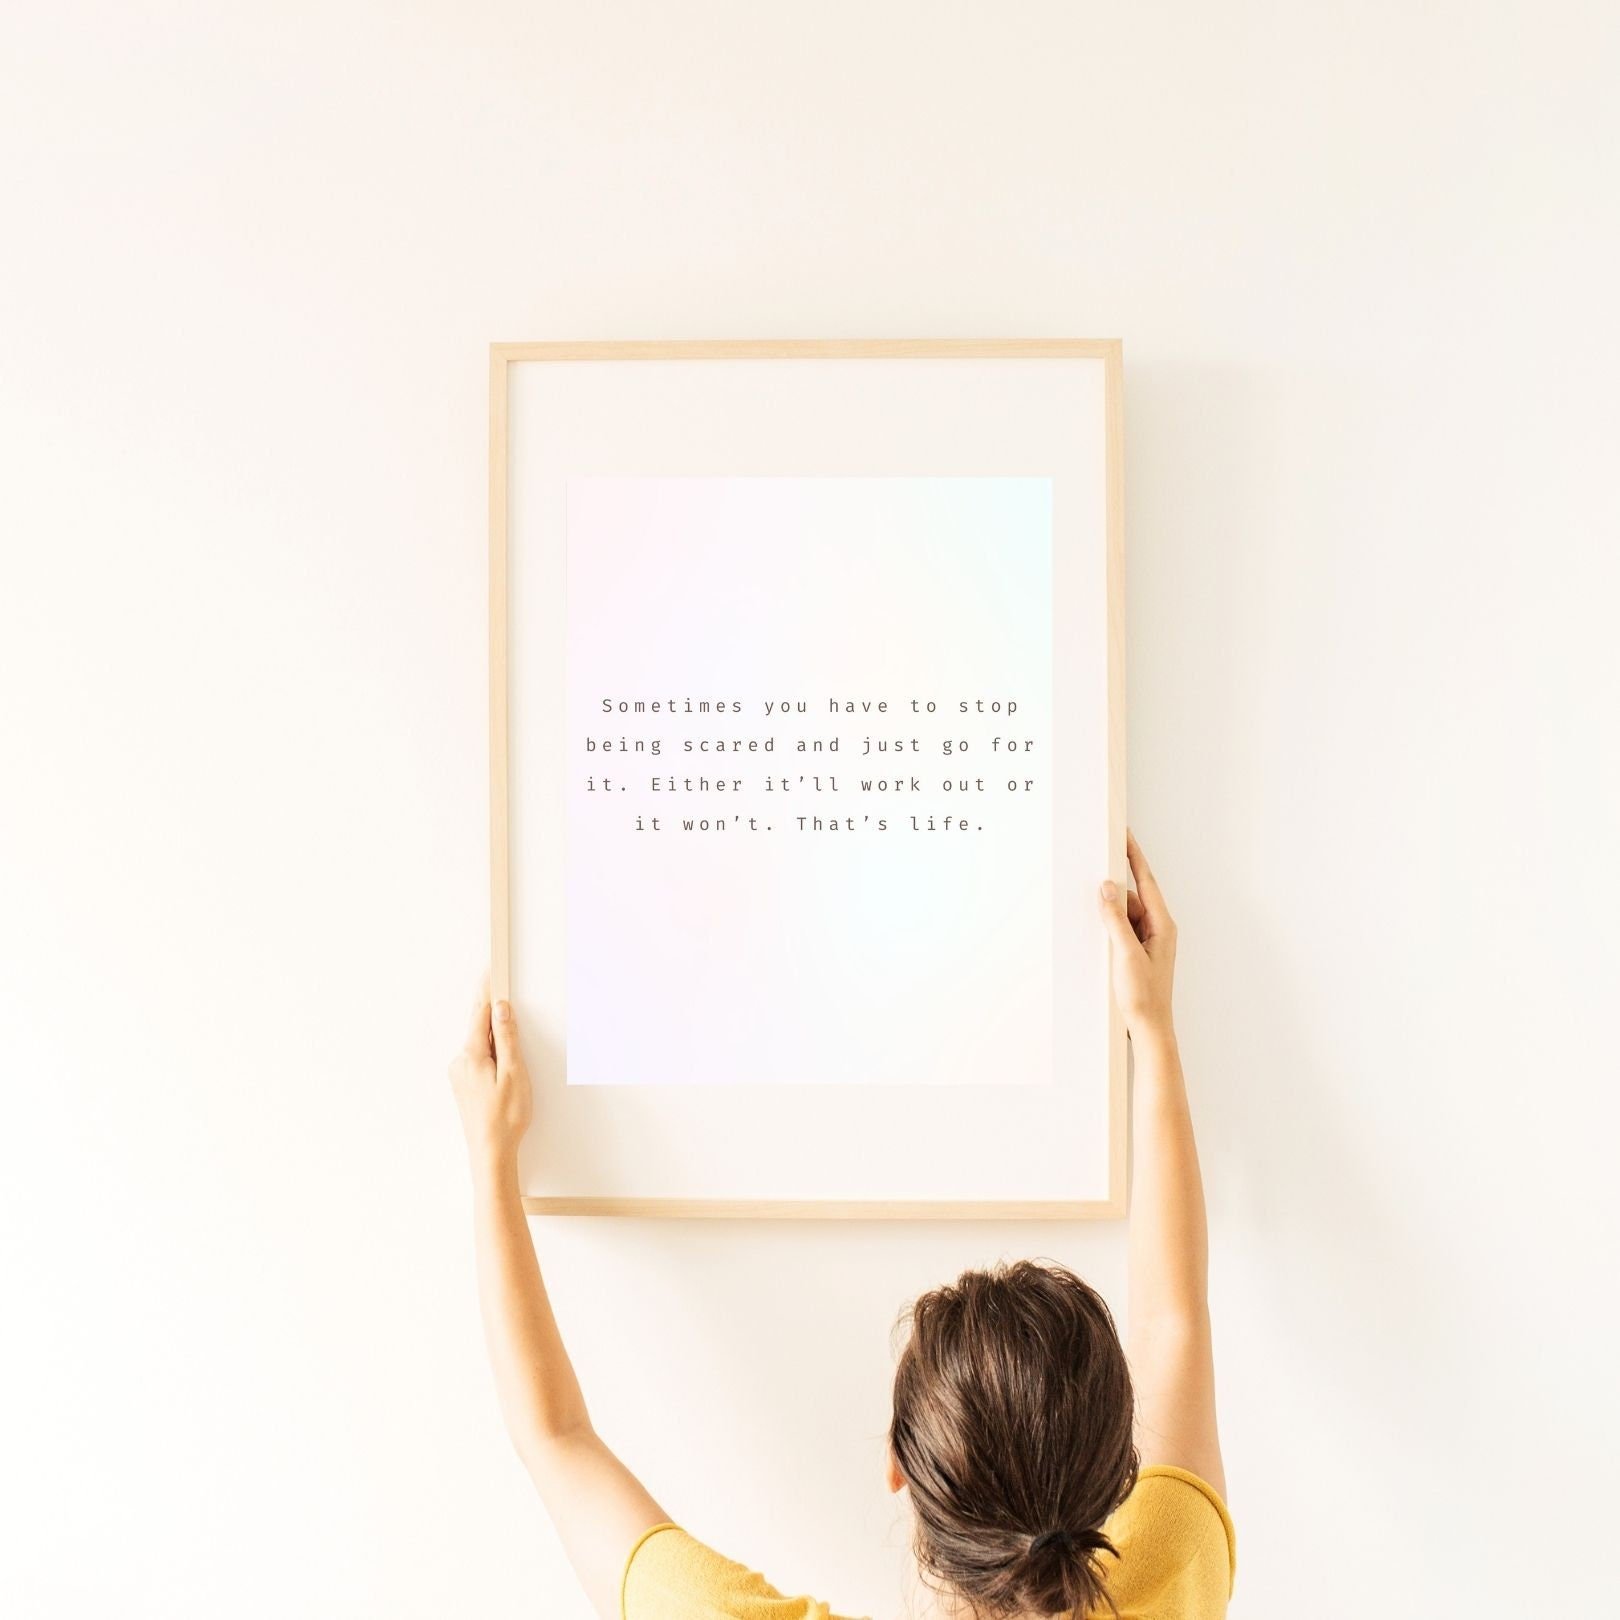 Sometimes you have to stop
being scared and just go for
it. Either it’ll work out or
it won’t. That’s life.